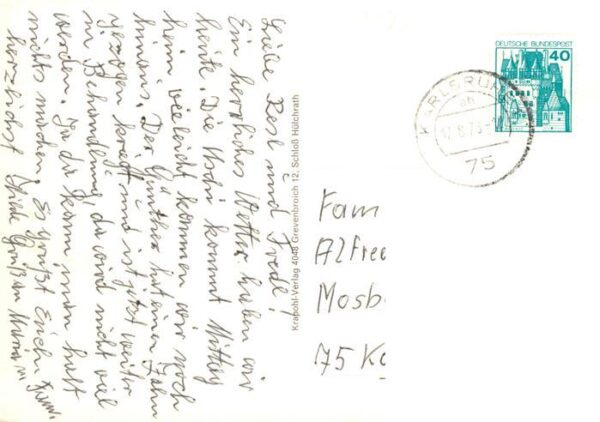 Liebe Resl und Fredl!
Ein herrliches Wetter haben wir
heute. Die Usdi kommt Mittag
heim vieleicht kommen wir noch
hinaus. Der Günther hat einen Zahn
gezogen kriegt und ist jetzt weiter
in Behandlung, da wird nicht viel
werden. Ja da kann man halt
nichts machen. Es grüßt Euch
herzlichst Hilde
Gruß an Mama
Krapohl-Verlag 4048 Grevenbroich 12, Schloß Hülchrath
DEUTSCHE BUNDESPOST
40
KARLSRUHE
75
Fam
Alfre
Mosb
75 Ka